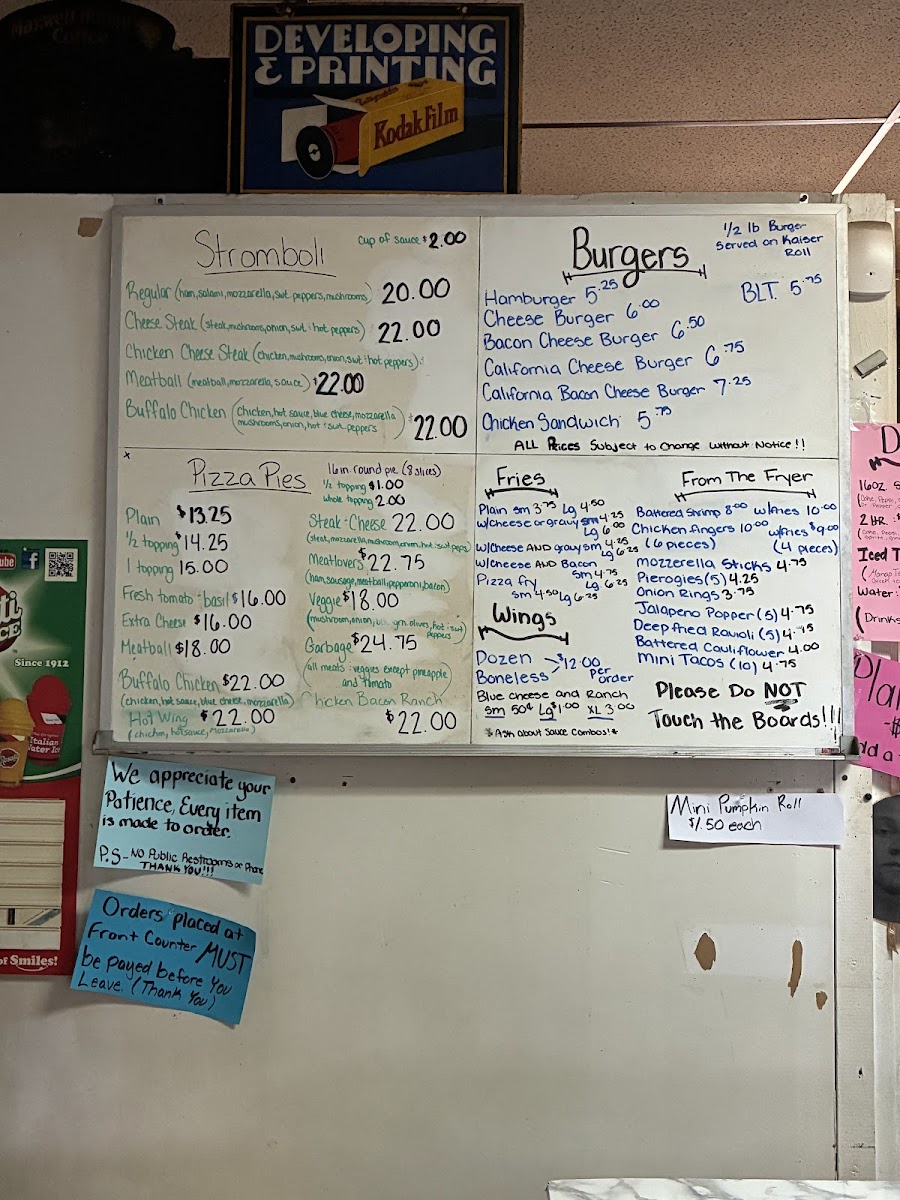 Maxwell House
Coffee
DEVELOPING
& PRINTING
Kodak Film
Stromboli
cup of sauce $2.00
Regular (ham, salami, mozzarella, swt. peppers, mushrooms) 20.00
Cheese Steak (steak, mushrooms, onion, swt & hot peppers) 22.00
Chicken Cheese Steak (chicken, mushrooms, onion, swt & hot peppers)
Meatball (meatball, mozzarella, sauce) $22.00
Buffalo Chicken (chicken, hot sauce, blue cheese, mozzarella
mushrooms, onion, hot & swt. peppers) $22.00
Burgers
1/2 lb Burger
Served on Kaiser
Roll
Hamburger 5.25
BLT. 5.75
Cheese Burger 6.00
Bacon Cheese Burger 6.50
California Cheese Burger 6.75
California Bacon Cheese Burger 7.25
Chicken Sandwich 5.75
ALL Prices Subject to Change Without Notice!!
x
Pizza Pies
16 in. round pie (8 slices)
1/2 topping $1.00
whole topping 2.00
Plain $13.25
1/2 topping $14.25
1 topping 15.00
Fresh tomato & basil $16.00
Extra Cheese $16.00
Meatball $18.00
Buffalo Chicken $22.00
(chicken, hot sauce, blue cheese, mozzarella)
Hot Wing $22.00
(chicken, hot sauce, mozzarella)
Steak & Cheese 22.00
(steak, mozzarella, mushroom, onion, hot & swt. peps)
Meatlovers $22.75
(ham, sausage, meatball, pepperoni, bacon)
Veggie $18.00
(mushroom, onion, grn. olives, hot & swt
peppers)
Garbage $24.75
(all meats & veggies except pineapple
and tomato
Chicken Bacon Ranch
$22.00
Fries
Plain sm 3.75 Lg 4.50
w/Cheese or gravy sm 4.25
Lg 6.00
w/Cheese AND gravy sm 4.25
Lg 6.25
w/Cheese AND Bacon
sm 4.75
Lg 6.25
Pizza fry
sm 4.50 Lg 6.25
Wings
Dozen
Boneless > $12.00
Per
order
Blue cheese and Ranch
sm 50¢ Lg $1.00 XL 3.00
*Ask about Sauce Combos!*
From The Fryer
Battered Shrimp 8.00 w/fries 10.00
Chicken fingers 10.00 w/fries $9.00
(6 pieces) (4 pieces)
Mozzerella Sticks 4.75
Pierogies (5) 4.25
Onion Rings 3.75
Jalapeno Popper (5) 4.75
Deep fried Ravioli (5) 4.45
Battered Cauliflower 4.00
Mini Tacos (10) 4.75
Please Do NOT
Touch the Boards!!!
We appreciate your
Patience, Every item
is made to order.
P.S- NO Public Restrooms or Phone
THANK YOU!!!
Orders placed at
Front Counter MUST
be payed before you
Leave. (Thank You)
Mini Pumpkin Roll
$1.50 each
Since 1912
Italian
Water Ice
of Smiles!
16oz.
2 LTR
Iced T
Water
Drinks